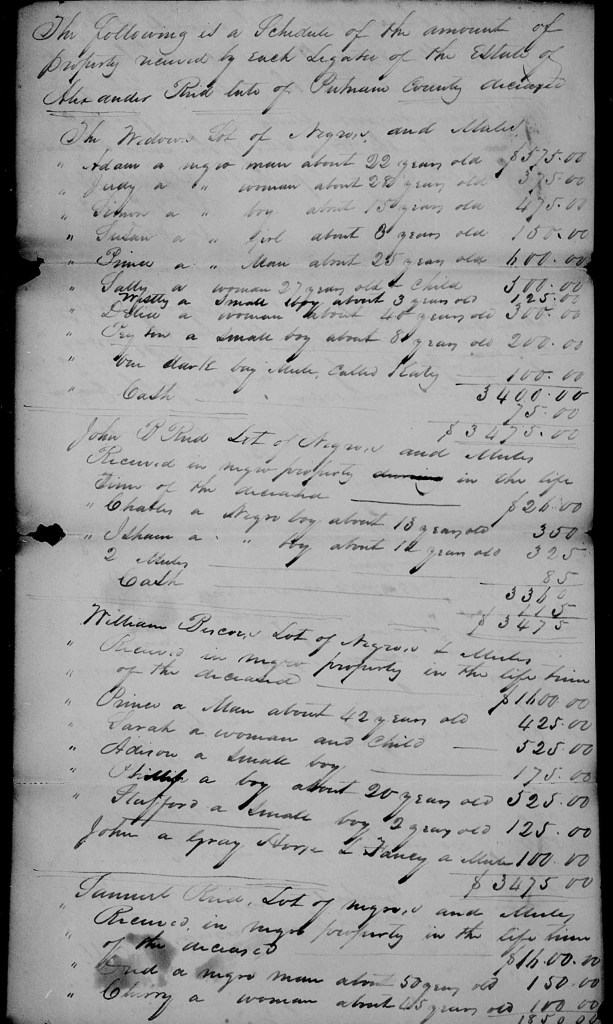 The following is a Schedule of the amount of
Property received by Each Legatee of the Estate of
Alexander Reid late of Putnam County deceased
The Widows Lot of Negroes, and Mules
" Adam a negro man about 22 years old $575.00
" Judy a " woman about 28 years old 375.00
" Simon a " boy about 15 years old 475.00
" Susan a " Girl about 8 years old 150.00
" Prince a " Man about 25 years old 600.00
" Sally a woman 27 years old & Child 500.00
Westly a Small boy about 3 years old 125.00
" a woman about 40 years old 300.00
" Peyton a small boy about 8 years old 200.00
" One dark bay Mule, Called Katy 100.00
3400.00
" Cash 75.00
$3475.00
John B Reid Lot of Negroes and Mules
Received in negro property in the life
time of the deceased $26.00
" Charles a Negro boy about 13 years old 350
" Isham a " boy about 12 years old 325
2 Mules 85
3360
Cash 115
$3475
William Lot of Negroes & Mules
" Received in negro property in the life time
of the deceased $1600.00
" Prince a Man about 42 years old 425.00
" Sarah a woman and Child 525.00
" Adison a small boy 175.00
" Phillip a boy about 20 years old 525.00
" Stafford a small boy 2 years old 125.00
John a Gray Horse & Fancy a Mule 100.00
$3475.00
Samuel Reid, Lot of negroes and Mules
" Received, in negro property in the life time
of the deceased $1600.00
" a negro man about 50 years old 150.00
" Cherry a woman about 45 years old 100.00
1850.00